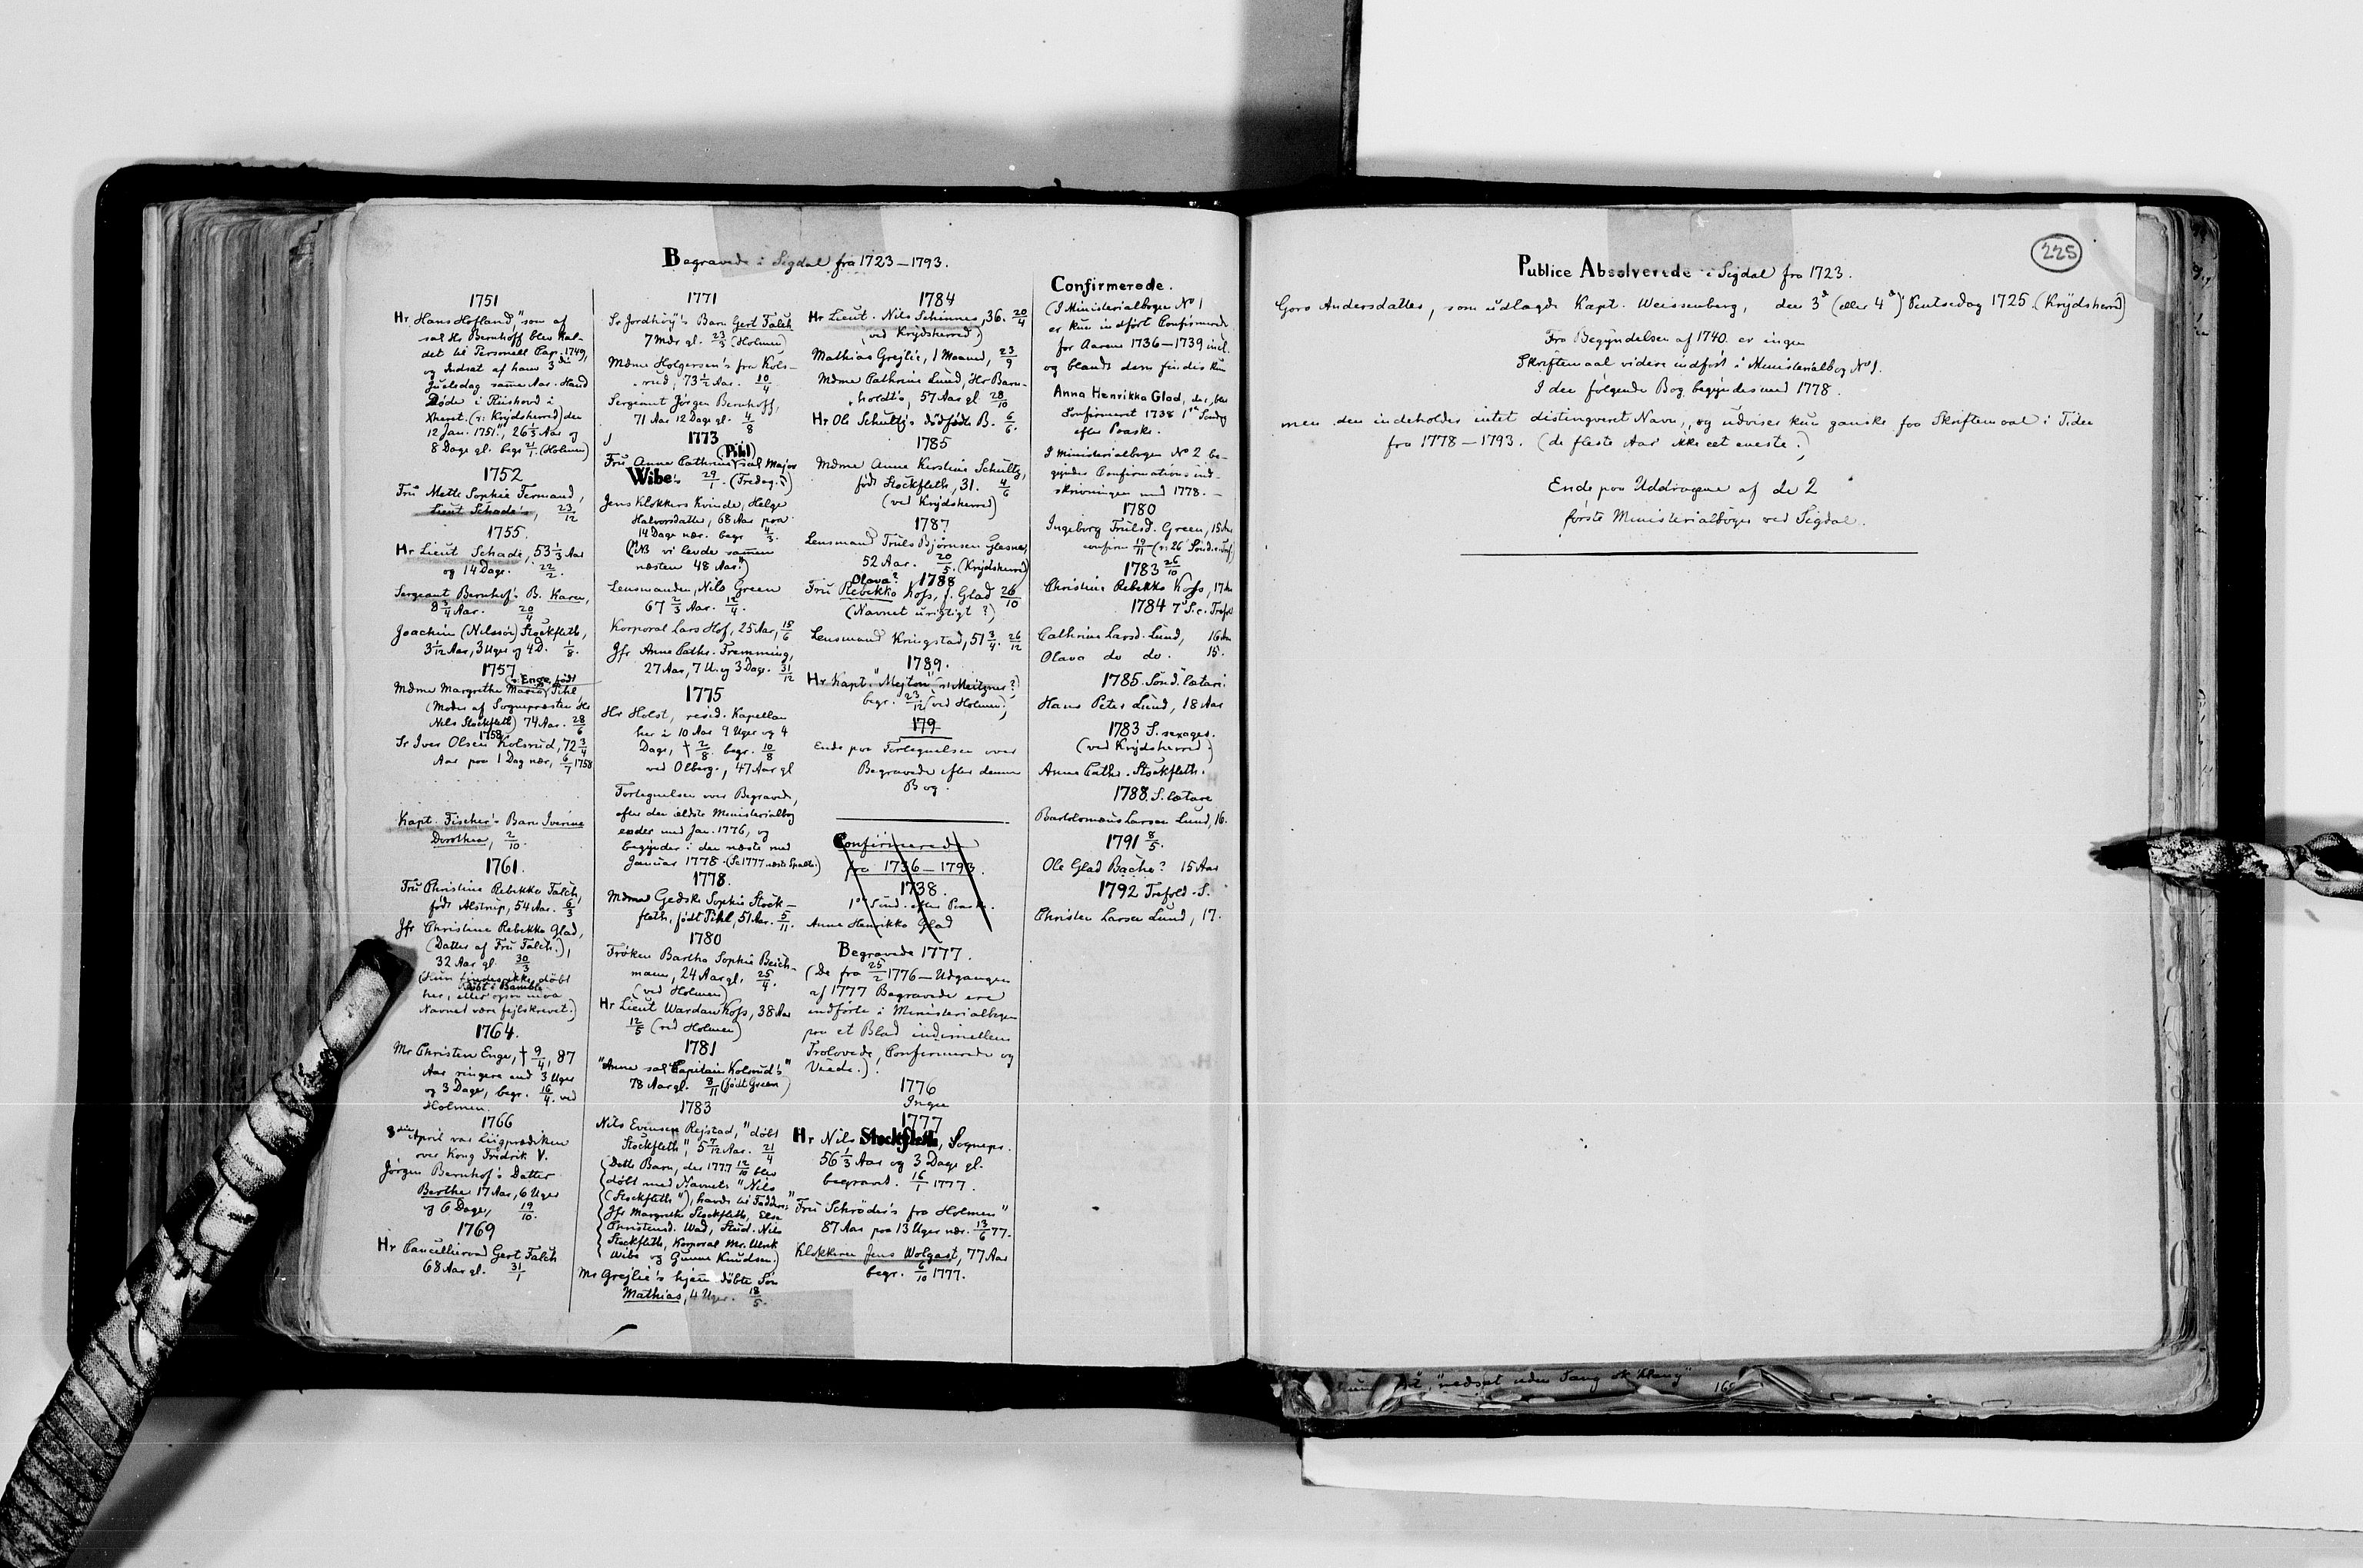 Begravede i Sigdal fra 1723–1793.
1751
Hr. Hans Hofland, "som af
sal Hr Bernhoff blev kal-
det til Personell Cap. 1749,
og Indsat af ham 3die
Juelsdag samme Aar. Hand
Døde i Riishovd i
Xherret. (ɔ: Krydsherred) den
12 Jan. 1751.", 26 1/3 Aar og
8 Dage gl. begr 21/1. (Holmen)
1752
Fru Mette Sophie Termand,
Lieut Schade's, 23/12
1755.
Hr Lieut Schade, 53 1/3 Aar
og 14 Dage. 22/2.
Sergeant Bernhof's B. Karen,
8 3/4 Aar. 20/4
Joachim (Nilssøn) Stockfleth,
3 1/12 Aar, 3 Uger og 4 D. 1/8.
1757
(ɔ: Enge, født
Mdme Margrethe Maria Pihl
(Moder af Sognepræsten Hr
Nils Stockfleth) 74 Aar. 28/6
1758
Sr Iver Olsen Kolsrud, 72 3/4
Aar paa 1 Dag nær, 6/7 1758
Kapt. Fischer's Barn Iverine
Dorothea, 2/10.
1761.
Fru Christine Rebekka Falch,
født Alstrup, 54 Aar. 6/3
Jfr Christine Rebekka Glad,
(Datter af Fru Falch.),
32 Aar gl. 30/3
(Hun findes ikke døbt
født i Bamble
her, eller ogsaa maa
Navnet være fejlskrevet.)
1764.
Mr Christen Enge, † 9/4, 87
Aar ringere end 3 Uger
og 3 Dage, begr. 16/4. ved
Holmen.
1766
8die April var Liigprædiken
over Kong Fridrik V.
Jørgen Bernhof's Datter
Berthe 17 Aar, 6 Uger
og 6 Dage, 19/10.
1769
Hr Cancelliraad Gert Falch
68 Aar gl. 31/1
1771
Sr Jordhøy's Barn Gert Falch
7 Mdr gl. 23/3 (Holmen)
Mdme Holgersen's fra Kols-
rud, 73 1/2 Aar. 10/4
Sergeant Jørgen Bernhoff,
71 Aar 12 Dage gl. 4/8
1773
(Pihl)
Fru Anna Cathrine sal Major
Wibe's 29/1. (Fredag.)
Jens Klokkers Kvinde, Helge
Halvorsdatter, 68 Aar paa
14 Dage nær. begr 4/3.
("NB vi levde sammen
næsten 48 Aar.")
Lensmanden, Nils Green
67 2/3 Aar. 12/4.
Korporal Lars Hof, 25 Aar, 18/6
Jfr Anne Cathr. Fremming,
27 Aar, 7 U. og 3 Dage. 31/12
1775
Hr Holst, resid. Kapellan
her i 10 Aar 9 Uger og 4
Dage, † 2/8. begr. 10/8
ved Olberg., 47 Aar gl
Fortegnelsen over Begravede,
efter den ældste Ministerialbog
ender med Jan. 1776, og
begynder i den næste med
Januar 1778. (Se 1777 næste Spalte.)
1778.
Mdme Gedske Sophie Stock-
fleth, født Pihl, 51 Aar. 5/11.
1780
Frøken Bartha Sophie Beich-
mann, 24 Aar gl. 25/4.
(ved Holmen)
Hr Lieut Wardan Koss, 38 Aar
12/5 (ved Holmen)
1781
"Anne sal Capitain Kolsrud's"
78 Aar gl. 8/11 (født Green)
1783
Nils Evensen Rejstad, "døbt
Stockfleth", 5 7/12 Aar. 21/4
(Dette Barn, der 1777 12/10 blev
døbt med Navnet "Nils
(Stockfleth"), havde til Faddere:
Jfr Margrethe Stockfleth, Else
Christensd. Wad, Stud. Nils
Stockfleth, Korporal Mr. Ulrik
Wibe og Gunne Knudsen.)
Mr Grejlie's hjemdøbte Søn
Mathias, 4 Uger. 18/5.
1784
Hr Lieut. Nils Schinnes, 36. 20/4
(ved Krydsherred.)
Mathias Grejlie, 1 Maaned, 23/9
Mdme Cathrine Lund, Hr Barn-
holdt's, 57 Aar gl 28/10
Hr Ole Schultz's dødfødte B. 6/6.
1785
Mdme Anne Kirstine Schultz,
født Stockfleth, 31. 4/6
(ved Krydsherred)
1787
Lensmand Truls Bjørnsen Glesne,
52 Aar. 20/5. (Krydsherred)
Olava? 1788
Fru Rebekka Koss, f. Glad 26/10
(Navnet urigtigt?)
Lensmand Kringstad, 51 3/4. 26/12
1789.
Hr Kapt. "Mejton" (ɔ: Meitzner?)
begr. 23/12 (ved Holmen)
179
Ende paa Fortegnelsen over
Begravede efter denne
Bog.
Confirmerede
fra 1736–1793.
1738.
1ste Sønd. efter Paaske.
Anne Henrikka Glad
Begravede 1777.
(De fra 25/2 1776 – Udgangen
af 1777 Begravede ere
indførte i Ministerialbogen
paa et Blad indimellem
Trolovede, Confirmerede og
Viede.)
1776
Ingen
1777
Hr Nils Stockfleth, Sognepr.
56 1/3 Aar og 3 Dage gl.
begravet. 16/1 1777.
"Fru Schrøder's fra Holmen"
87 Aar paa 13 Uger nær. 13/6 77.
Klokkeren Jens Wolgast, 77 Aar
begr. 6/10 1777.
Confirmerede.
(I Ministerialbogen No 1
er kun indført Confirmerede
for Aarene 1736–1739 incl.
og blandt dem findes kun
Anna Henrikka Glad, der blev
Confirmeret 1738 1ste Søndag
efter Paaske.
I Ministerialbogen No 2 be-
gynder Confirmationsind-
skrivningen med 1778. –
1780
Ingeborg Trulsd. Green, 15 Aar
confirm 19/11 (ɔ: 26 Sønd. e. Tref)
1783 26/10
Christine Rebekka Koss, 17 Aar
1784 7 S. e. Trefol
Cathrine Larsd. Lund, 16 Aar
Olava do do. 15.
1785. Sønd. lætari.
Hans Peter Lund, 18 Aar
1783 S. sexages.
(ved Krydsherred)
Anne Cathr. Stockfleth.
1788. S. lætare
Bartolomæus Larsen Lund, 16.
1791 8/5.
Ole Glad Bache? 15 Aar
1792 Trefold. S.
Christen Larsen Lund, 17.
225
Publice Absolverede i Sigdal fra 1723.
Goro Andersdatter, som udlagde Kapt. Weissenberg, den 3die (eller 4de) Pentsedag 1725 (Krydsherred)
Fra Begyndelsen af 1740. er ingen
Skriftemaal videre indført i Ministerialbog No 1.
I den følgende Bog begyndes med 1778.
men den indeholder intet distingvert Navn, og udviser kun ganske faa Skriftemaal i Tiden
fra 1778–1793. (de fleste Aar ikke eet eneste.)
Ende paa Uddragene af de 2
første Ministerialbøger ved Sigdal.
nedsat uden Sang ok Klang"